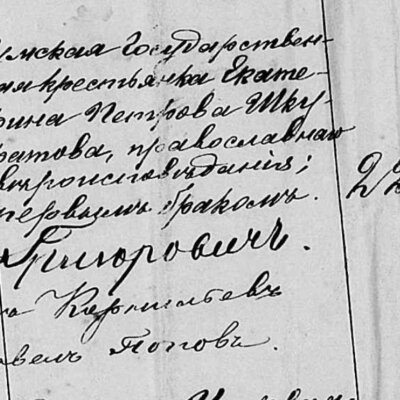 умская Государствен-
ная крестьянка Екате-
рина Петрова Шку-
ратова, православнаго
вѣроисповѣданія;
первымъ бракомъ. 22
Григоровичъ.
Корнильевъ
Павелъ Поповъ.